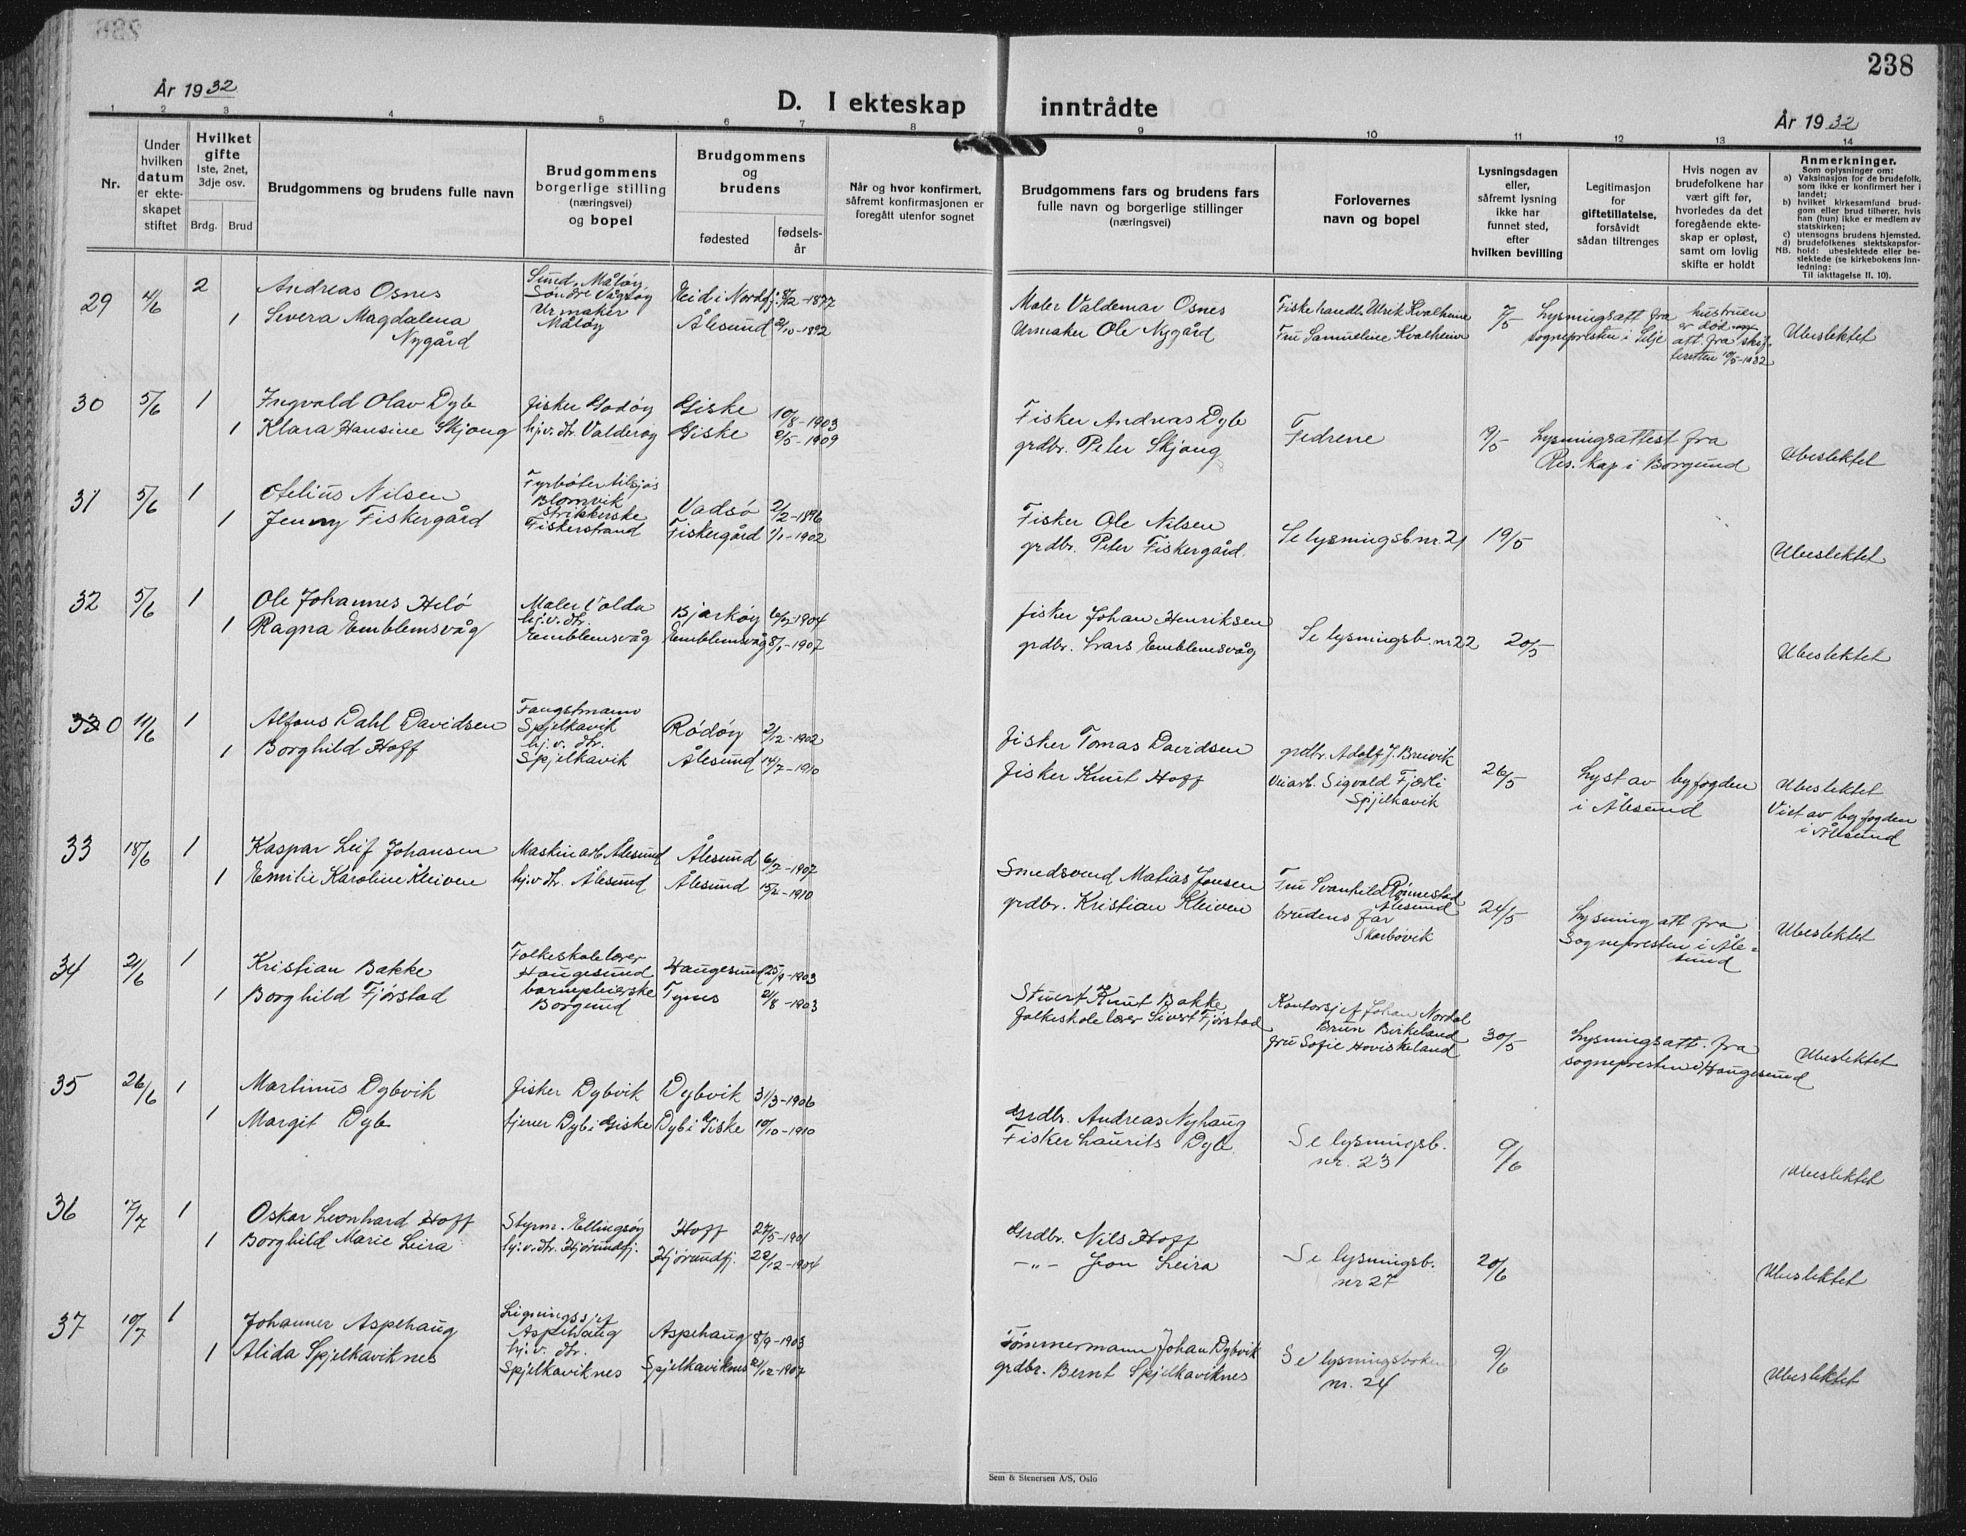 238
År 1932
D. I ekteskap inntrådte
År 1932
1 2 3 4 5 6 7 8 9 10 11 12 13 14
Nr.
Under hvilken datum er ekteskapet stiftet
Hvilket gifte
1ste, 2net, 3dje osv.
Brdg. Brud
Brudgommens og brudens fulle navn
Brudgommens borgerlige stilling (næringsvei) og bopel
Brudgommens og brudens
fødested
fødselsår
Når og hvor konfirmert, såfremt konfirmasjonen er foregått utenfor sognet
Brudgommens fars og brudens fars fulle navn og borgerlige stillinger (næringsvei)
Forlovernes navn og bopel
Lysningsdagen eller, såfremt lysning ikke har funnet sted, efter hvilken bevilling
Legitimasjon for giftetillatelse, forsåvidt sådan tiltrenges
Hvis nogen av brudefolkene har vært gift før, hvorledes da det foregående ekteskap er opløst, samt om lovlig skifte er holdt
Anmerkninger.
Som oplysninger om:
a) Vaksinasjon for de brudefolk, som ikke er konfirmert her i landet;
b) hvilket kirkesamfund brudgom eller brud tilhører, hvis han (hun) ikke er medlem av statskirken;
c) utensogns brudens hjemsted.
d) brudefolkenes slektskapsforhold: ubeslektede eller beslektede (se kirkebokens innledning:
NB.
Til iakttagelse II. 10).
29 4/6 2 Andreas Osnes Sund, Måløy, Søndre Vågsøy Urmaker Eid i Nordfj. 8/2-1877 Maler Valdemar Osnes Fiskehandl. Ulrik Kvalheim 7/5 Lysningsatt fra sognepresten i Selje hustruen er død att. fra skifteretten 10/5-1932 Ubeslektet
1 Severa Magdalena Nygård Måløy Ålesund 2/10-1892 Urmaker Ole Nygård Fru Samueline Kvalheim
30 5/6 1 Ingvald Olav Dyb fisker Godøy Giske 10/8-1903 Fisker Andreas Dyb Fedrene 19/5 Lysningsattest fra Res. kap i Borgund Ubeslektet
1 Klara Hansine Skjong hj.v. dtr. Valderøy Giske 2/5-1909 grdbr. Peter Skjong
31 5/6 1 Nilsen Fyrbøter tilsjøs Blomvik Vadsø 2/2-1896 Fisker Ole Nilsen Se lysningsb nr. 21 19/5 Ubeslektet
1 Jenny Fiskergård Strikkerske Fiskerstrand Fiskergård 1/1-1902 grdbr. Peter Fiskergård
32 5/6 1 Ole Johannes Helø Maler Volda Bjarkøy 6/2-1904 fisker Johan Henriksen Se lysningsb. nr 22 20/5 Ubeslektet
1 Ragna Emblemsvåg hj.v. dtr. Emblemsvåg Emblemsvåg 8/1-1907 grdbr. Lars Emblemsvåg
33 0 11/6 1 Alfons Dahl Davidsen Fangstmann Spjelkavik Rødøy 2/12-1902 fisker Tomas Davidsen grdbr. Adolf J. Breivik 26/5 Lyst av byfogden i Ålesund Ubeslektet
1 Borghild Hoff hj.v. dtr. Spjelkavik Ålesund 14/7-1910 fisker Knut Hoff Veiarb. Sigvald Fjærli Spjelkavik Viet av byfogden i Ålesund
33 18/6 1 Kaspar Leif Johansen Maskinarb Ålesund Ålesund 6/7-1907 Smedsvend Matias Jonsen Fru Svanhild Rønnestad Ålesund 24/5 Lysning att fra Sognepresten i Ålesund Ubeslektet
1 Emilie Karoline Kleiven hj.v dtr. Ålesund Ålesund 15/2-1910 grdbr. Kristian Kleiven brudens far Skarbøvik
34 21/6 1 Kristian Bakke Folkeskolelærer Haugesund Haugesund 25/9-1903 Stuert Knut Bakke Kontorsjef Johan Nordal Brun Birkeland 30/5 Lysningsatt. fra sognepresten i Haugesund Ubeslektet
1 Borghild Fjørstad barnepleierske Borgund 21/8-1903 folkeskolelærer Sivert Fjørstad fru Sofie Hoviskeland
35 26/6 1 Martinus Dybvik fisker Dybvik Dybvik 31/3-1906 Grdbr. Andreas Nyhaug Se lysningsb. nr. 23 9/6 Ubeslektet
1 Margit Dyb tjener Dyb i Giske Dyb i Giske 10/10-1910 Fisker Laurits Dyb
36 17/7 1 Oskar Leonhard Hoff Styrm. Ellingsøy Hoff 27/5-1901 Grdbr. Nils Hoff Se lysningsb. nr 27 20/6 Ubeslektet
1 Borghild Marie Leira hj.v. dtr. Hjørundfj. Hjørundfj. 22/12-1904 -"- Jon Leira
37 10/7 1 Johannes Aspehaug Ligningssjef Aspehaug Aspehaug 8/9-1903 Tømmermann Johan Dybvik Se lysningsboken nr. 24 9/6 Ubeslektet
1 Alida Spjelkaviknes hj.v. dtr. Spjelkaviknes Spjelkaviknes 21/12-1907 grdbr. Bernt Spjelkaviknes
Sem & Stenersen A/S, Oslo